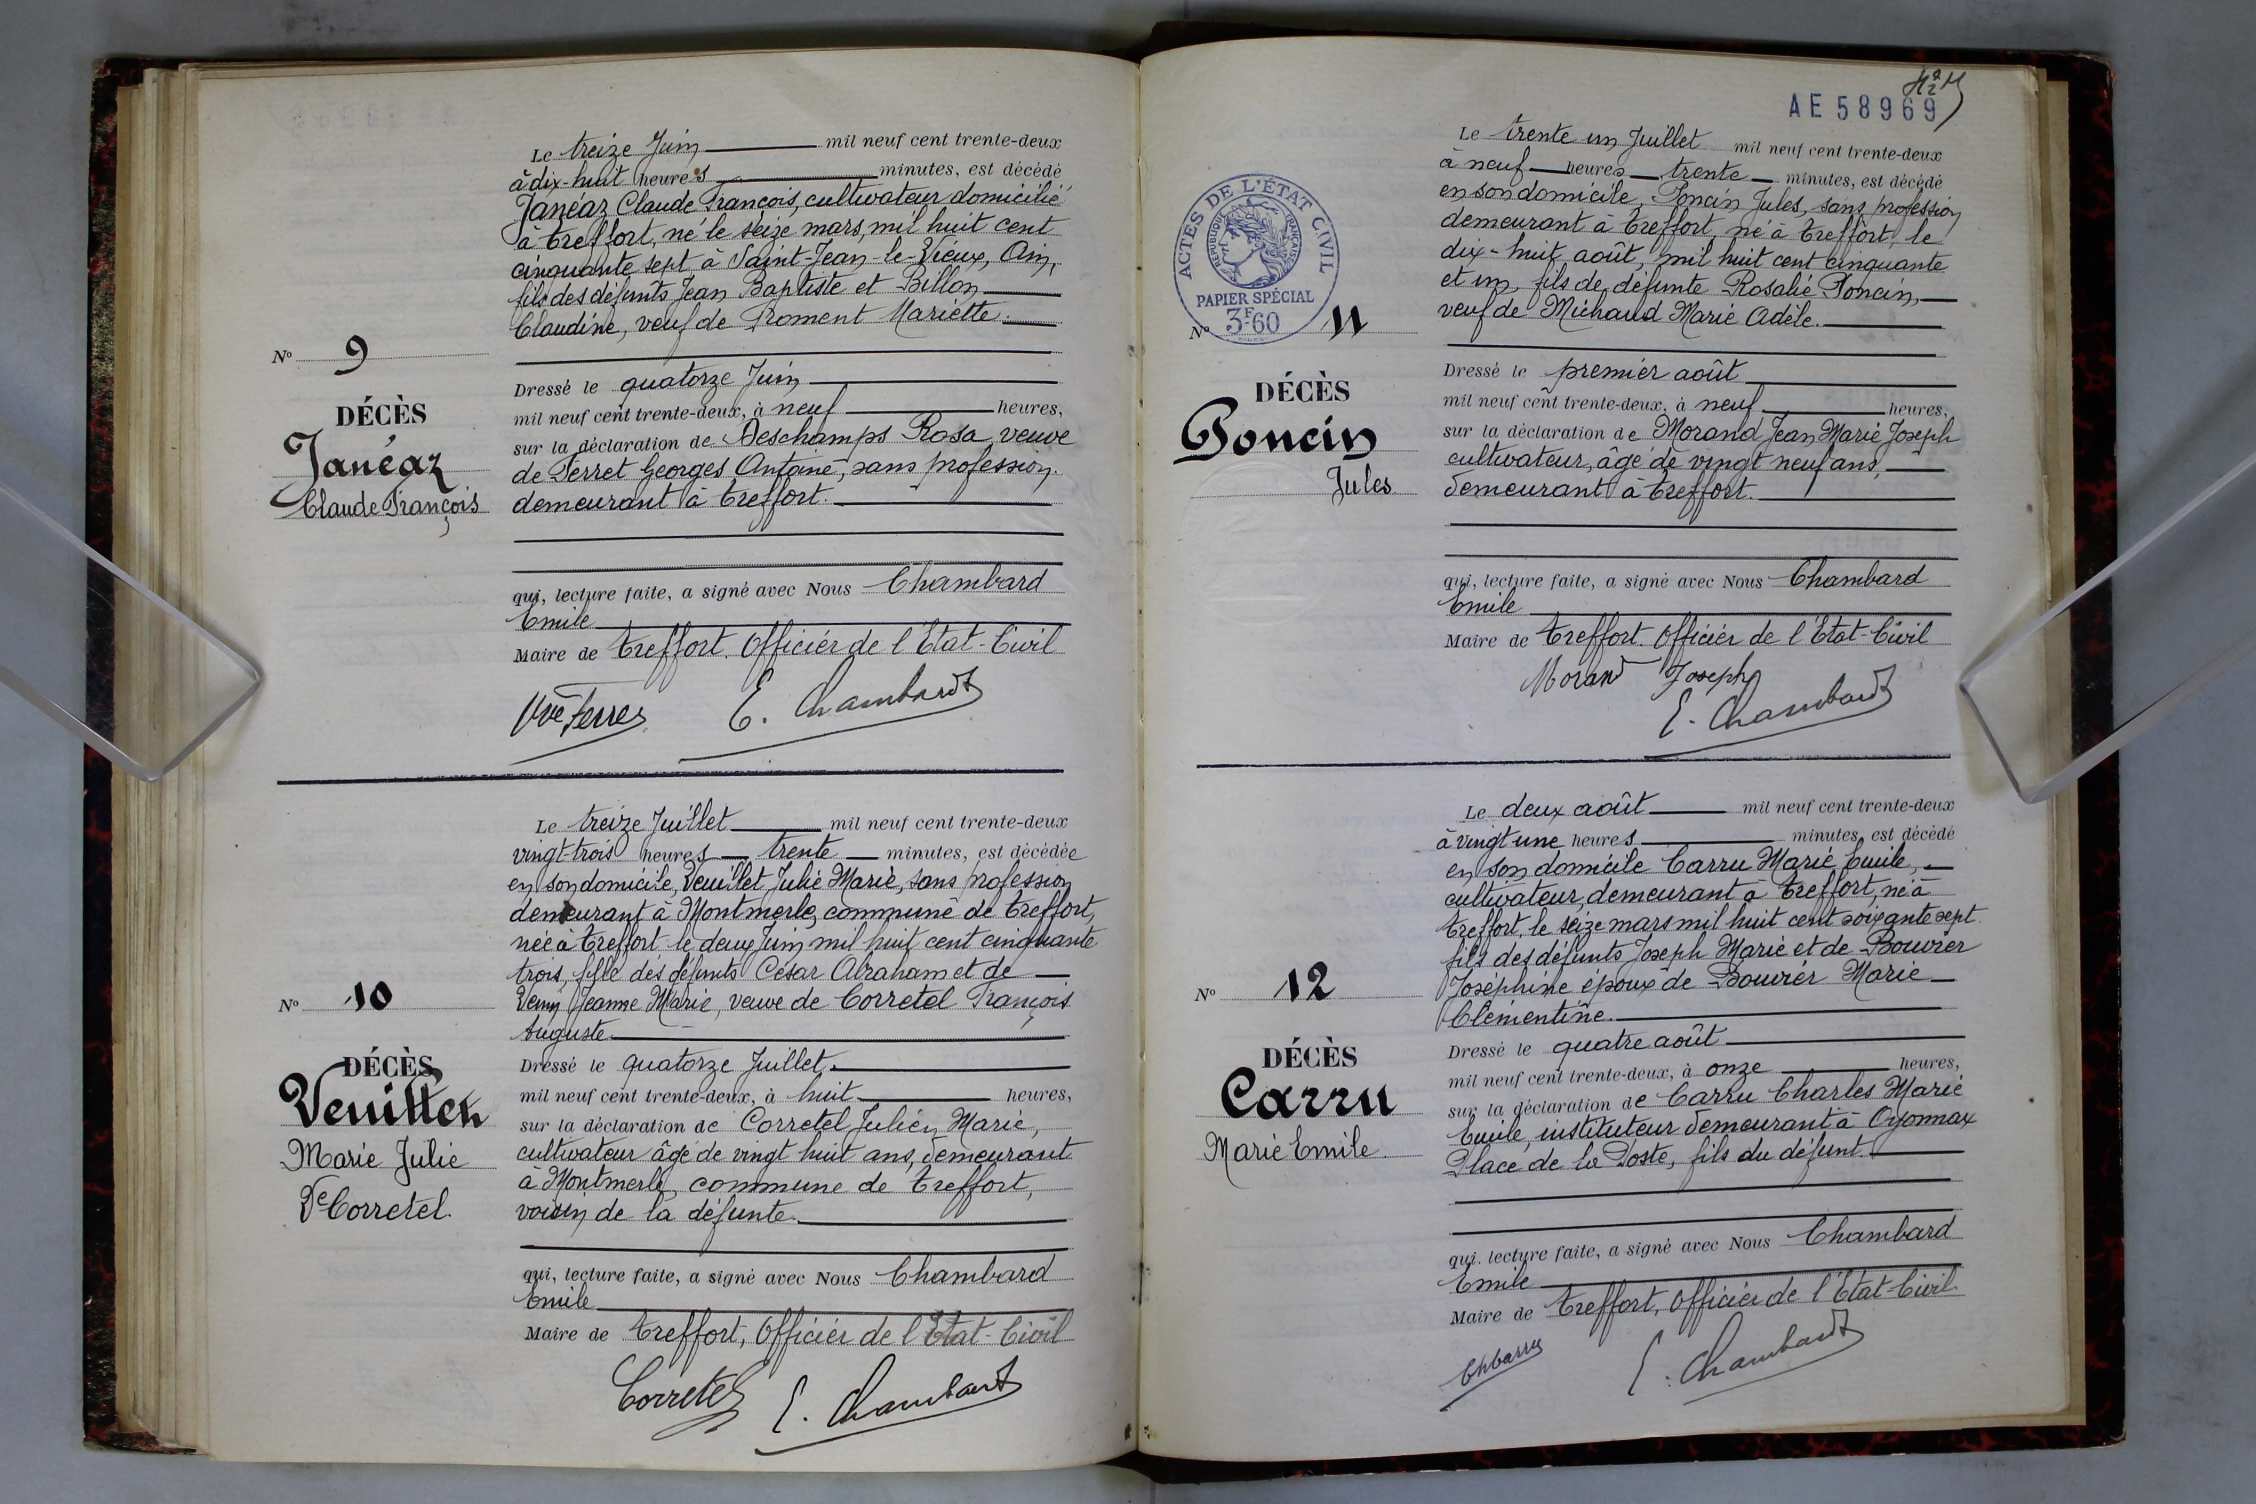 Le treize Juin mil neuf cent trente-deux
à dix-huit heures minutes, est décédé
Janéaz Claude François, cultivateur domicilié
à Treffort, né le seize mars, mil huit cent
cinquante sept à Saint-Jean-le-Vieux, Ain,
fils des défunts Jean Baptiste et Billon
Claudine, veuf de Froment Mariette.
No 9
DÉCÈS
Janéaz
Claude François
Dressé le quatorze Juin
mil neuf cent trente-deux, à neuf heures,
sur la déclaration de Deschamps Rosa veuve
de Ferret Georges Antoine, sans profession.
demeurant à Treffort.
qui, lecture faite, a signé avec Nous Chambard
Emile
Maire de Treffort. Officier de l'Etat-Civil
Vve Ferret E. Chambard
Le treize Juillet mil neuf cent trente-deux
vingt-trois heures trente minutes, est décédée
en son domicile, Veuillet Julie Marie, sans profession
demeurant à Montmerle, commune de Treffort,
née à Treffort le deux Juin mil huit cent cinquante
trois, fille des défunts César Abraham et de
Jeanne Marie, veuve de Corretel François
Auguste
No 10
DÉCÈS
Veuillet
Marie Julie
Ve Corretel.
Dressé le quatorze Juillet
mil neuf cent trente-deux, à huit heures,
sur la déclaration de Corretel Julien Marie,
cultivateur âgé de vingt huit ans, demeurant
à Montmerle commune de Treffort,
voisin de la défunte.
qui, lecture faite, a signé avec Nous Chambard
Emile
Maire de Treffort, Officier de l'Etat-Civil
Corretel E. Chambard
AE 58969
ACTES DE L'ÉTAT CIVIL
RÉPUBLIQUE FRANÇAISE
PAPIER SPÉCIAL
3F60
Le trente un Juillet mil neuf cent trente-deux
à neuf heures trente minutes, est décédé
en son domicile, Poncin Jules, sans profession
demeurant à Treffort, né à Treffort, le
dix-huit août, mil huit cent cinquante
et un, fils de défunte Rosalie Poncin,
veuf de Michaud Marie Adèle.
No 11
DÉCÈS
Poncin
Jules
Dressé le premier août
mil neuf cent trente-deux, à neuf heures,
sur la déclaration de Morand Jean Marie Joseph
cultivateur, âgé de vingt neuf ans,
demeurant à Treffort.
qui, lecture faite, a signé avec Nous Chambard
Emile
Maire de Treffort. Officier de l'Etat-Civil
Morand Joseph
E. Chambard
Le deux août mil neuf cent trente-deux
à vingt une heures minutes, est décédé
en son domicile Carru Marie Emile,
cultivateur, demeurant à Treffort, né à
Treffort, le seize mars mil huit cent soixante sept
fils des défunts Joseph Marie et de Bouvier
Joséphine époux de Bouvier Marie
Clémentine.
No 12
DÉCÈS
Carru
Marie Emile
Dressé le quatre août
mil neuf cent trente-deux, à onze heures,
sur la déclaration de Carru Charles Marie
Emile, instituteur demeurant à Oyonnax
Place de la Poste, fils du défunt.
qui, lecture faite, a signé avec Nous Chambard
Emile
Maire de Treffort, Officier de l'Etat-Civil
Ch Carru E. Chambard